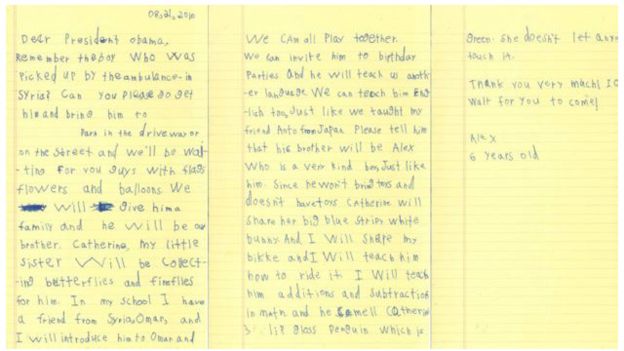 08.21.2010
Dear President obama,
Remember the boy who was
picked up by the ambulance in
Syria? Can you please go get
him and bring him to
Park in the driveway or
on the street and we'll be wai-
ting for you guys with flags
flowers and balloons. We
will give him a
family and he will be our
brother. Catherine, my little
sister will be collect-
ing butterflies and fireflies
for him. In my school I have
a friend from Syria, Omar, and
I will introduce him to Omar and
We can all play together.
We can invite him to birthday
parties and he will teach us anoth-
er language. We can teach him Eng-
lish too, Just like we taught my
friend Aoto from Japan. Please tell him
that his brother will be Alex
who is a very kind boy, Just like
him. Since he won't bring toys and
doesn't have toys Catherine will
share her big blue stripy white
bunny. And I will share my
bikke and I will teach him
how to ride it. I will teach
him additions and subtraction
in math and he smell Catherine
's lip gloss penguin which is
green. She doesn't let any
touch it.
Thank you very mach! I
wait for you to come!
Alex
6 years old